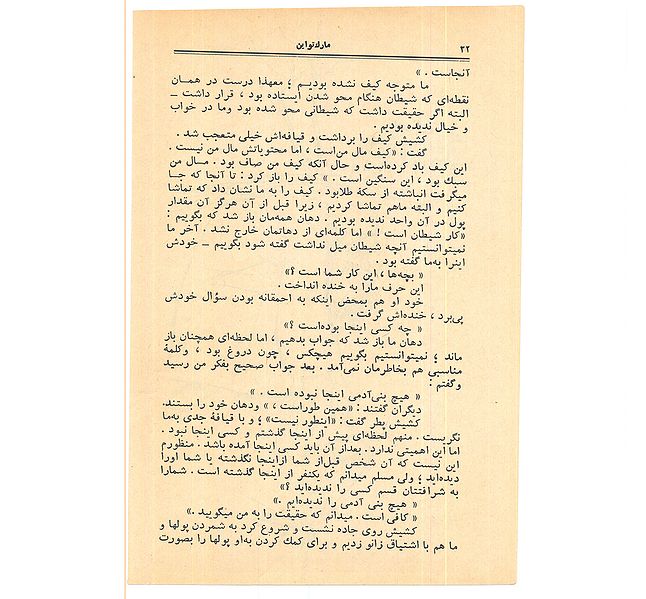 ۳۲
مارك‌تواین
آنجاست . »
ما متوجه کیف نشده بودیم ؛ معهذا درست در همان
نقطه‌ای که شیطان هنگام محو شدن ایستاده بود ، قرار داشت ــ
البته اگر حقیقت داشت که شیطانی محو شده بود وما در خواب
و خیال ندیده بودیم .
کشیش کیف را برداشت و قیافه‌اش خیلی متعجب شد .
گفت : «کیف مال من‌است ، اما محتویاتش مال من نیست .
این کیف باد کرده‌است و حال آنکه کیف من صاف بود . مال من
سبك بود ، این سنگین است . » کیف را باز کرد : تا آنجا که جا
میگرفت انباشته از سکهٔ طلابود . کیف را به ما نشان داد که تماشا
کنیم و البته ماهم تماشا کردیم ، زیرا قبل از آن هرگز آن مقدار
پول در آن واحد ندیده بودیم . دهان همه‌مان باز شد که بگوییم :
«کار شیطان است ! » اما کلمه‌ای از دهانمان خارج نشد . آخر ما
نمیتوانستیم آنچه شیطان میل نداشت گفته شود بگوییم ــ خودش
اینرا به‌ما گفته بود .
« بچه‌ها ، این کار شما است ؟»
این حرف مارا به خنده انداخت .
خود او هم بمحض اینکه به احمقانه بودن سؤال خودش
پی‌برد ، خنده‌اش گرفت .
« چه کسی اینجا بوده‌است ؟»
دهان ما باز شد که جواب بدهیم ، اما لحظه‌ای همچنان باز
ماند ؛ نمیتوانستیم بگوییم هیچکس ، چون دروغ بود ، وکلمهٔ
مناسبی هم بخاطرمان نمی‌آمد . بعد جواب صحیح بفکر من رسید
وگفتم :
« هیچ بنی‌آدمی اینجا نبوده است . »
دیگران گفتند : «همین طوراست ، » ودهان خود را بستند.
کشیش پطر گفت : «اینطور نیست» ؛ و با قیافهٔ جدی به‌ما
نگریست . منهم لحظه‌ای پیش از اینجا گذشتم و کسی اینجا نبود .
اما این اهمیتی ندارد . بعداز آن باید کسی اینجا آمده باشد . منظورم
این نیست که آن شخص قبل‌از شما ازاینجا نگذشته یا شما اورا
دیده‌اید ؛ ولی مسلم میدانم که یکنفر از اینجا گذشته است . شمارا
به شرافتتان قسم کسی را ندیده‌اید ؟»
« هیچ بنی آدمی را ندیده‌ایم .»
« کافی است . میدانم که حقیقت را به من میگویید .»
کشیش روی جاده نشست و شروع کرد به شمردن پولها و
ما هم با اشتیاق زانو زدیم و برای کمك کردن به‌او پولها را بصورت